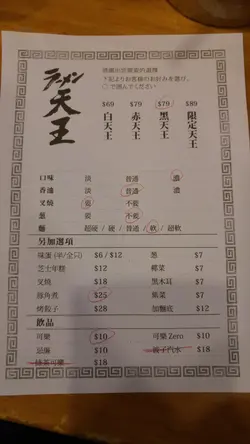 ラーメン
天王
請圈出您需要的選擇
下記よりお客様のお好みを選び、
○で囲んでください
$69 $79 $79 $89
白天王 赤天王 黑天王 限定天王
口味 淡 普通 濃
香油 淡 普通 濃
叉燒 要 不要
葱 要 不要
麵 超硬 / 硬 / 普通 / 軟 / 超軟
另加選項
味蛋 (半/全只) $6 / $12
葱 $7
芝士年糕 $12
椰菜 $7
叉燒 $18
黑木耳 $7
豚角煮 $25
$7
烤餃子 $28
加麵底 $12
飲品
可樂 $10
可樂 Zero $10
忌廉 $10
波子汽水 $18
$18